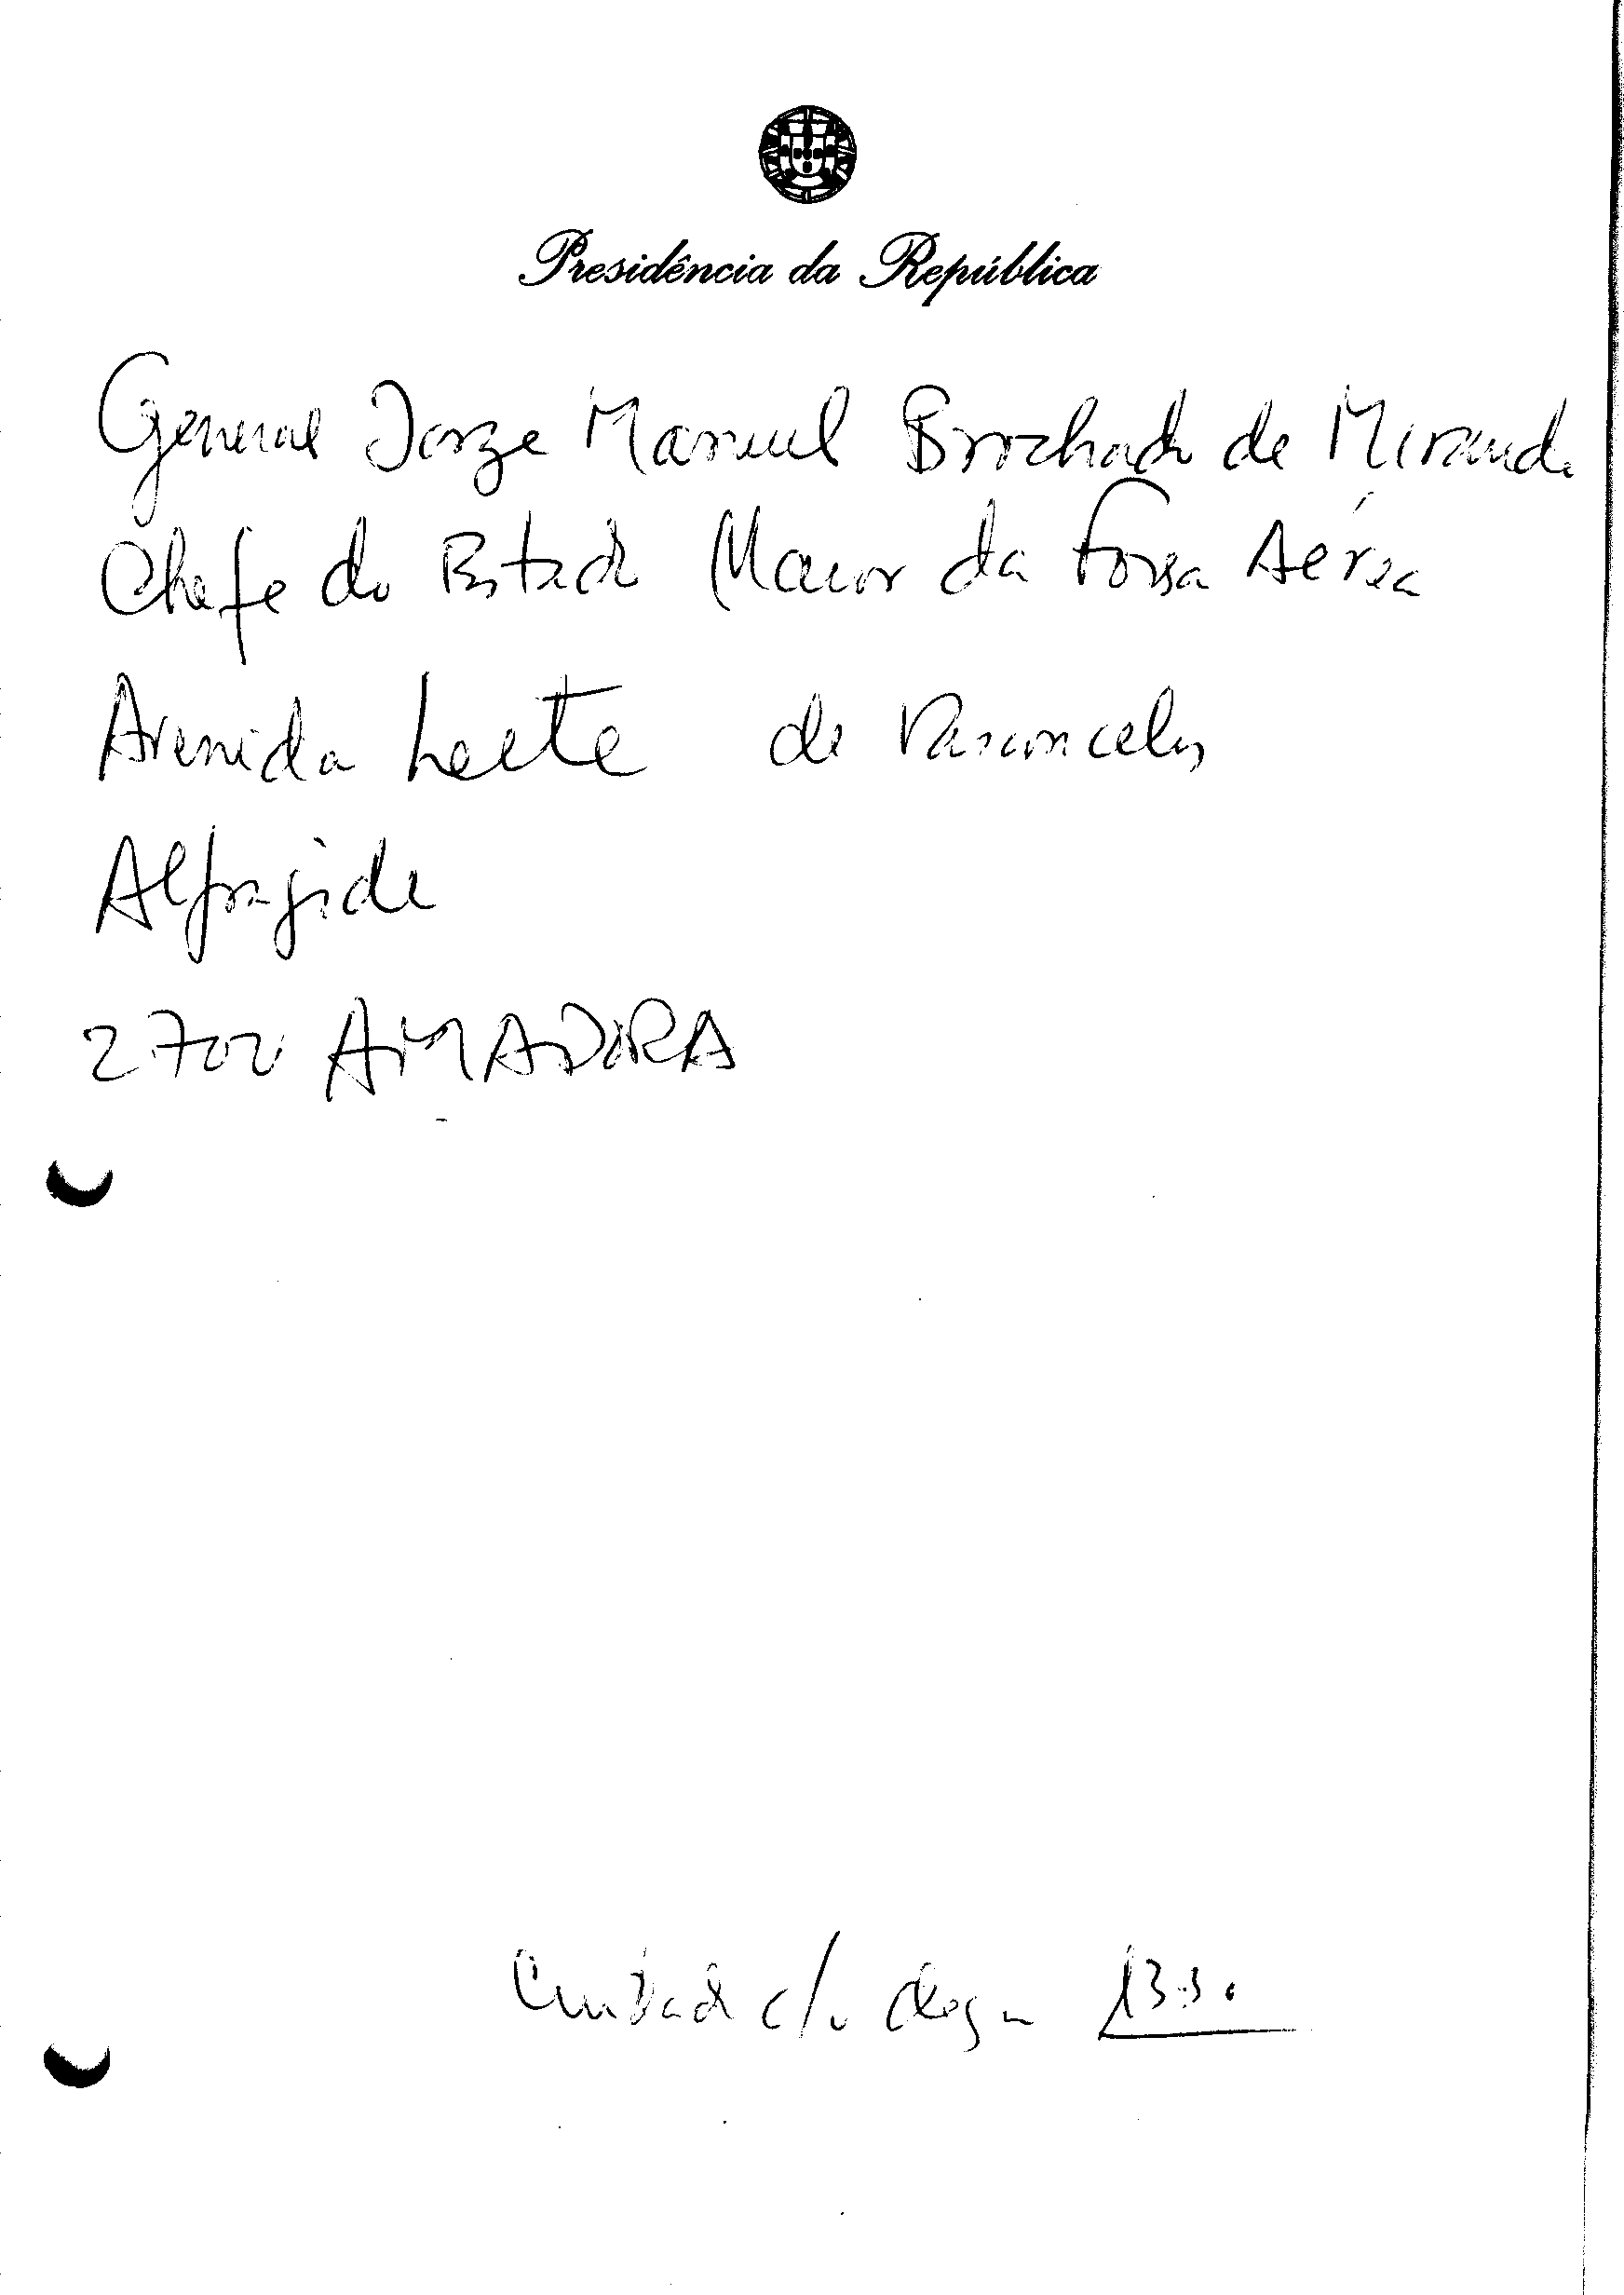 Presidência da República
General Jorge Manuel Brochado de Miranda
Chefe do Estado Maior da Força Aérea
Avenida Leite de Vasconcelos
Alfragide
2700 AMADORA
c/o 13.30